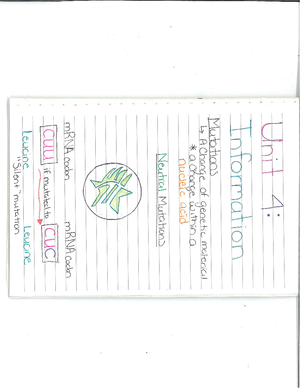 Unit 4:
Information
Mutations
↳ A change of genetic material
* a change within a
nucleic acid
Neutral Mutations
mRNA codon mRNA codon
CUU if mutated to CUC
Leucine Leucine
"Silent" mutation